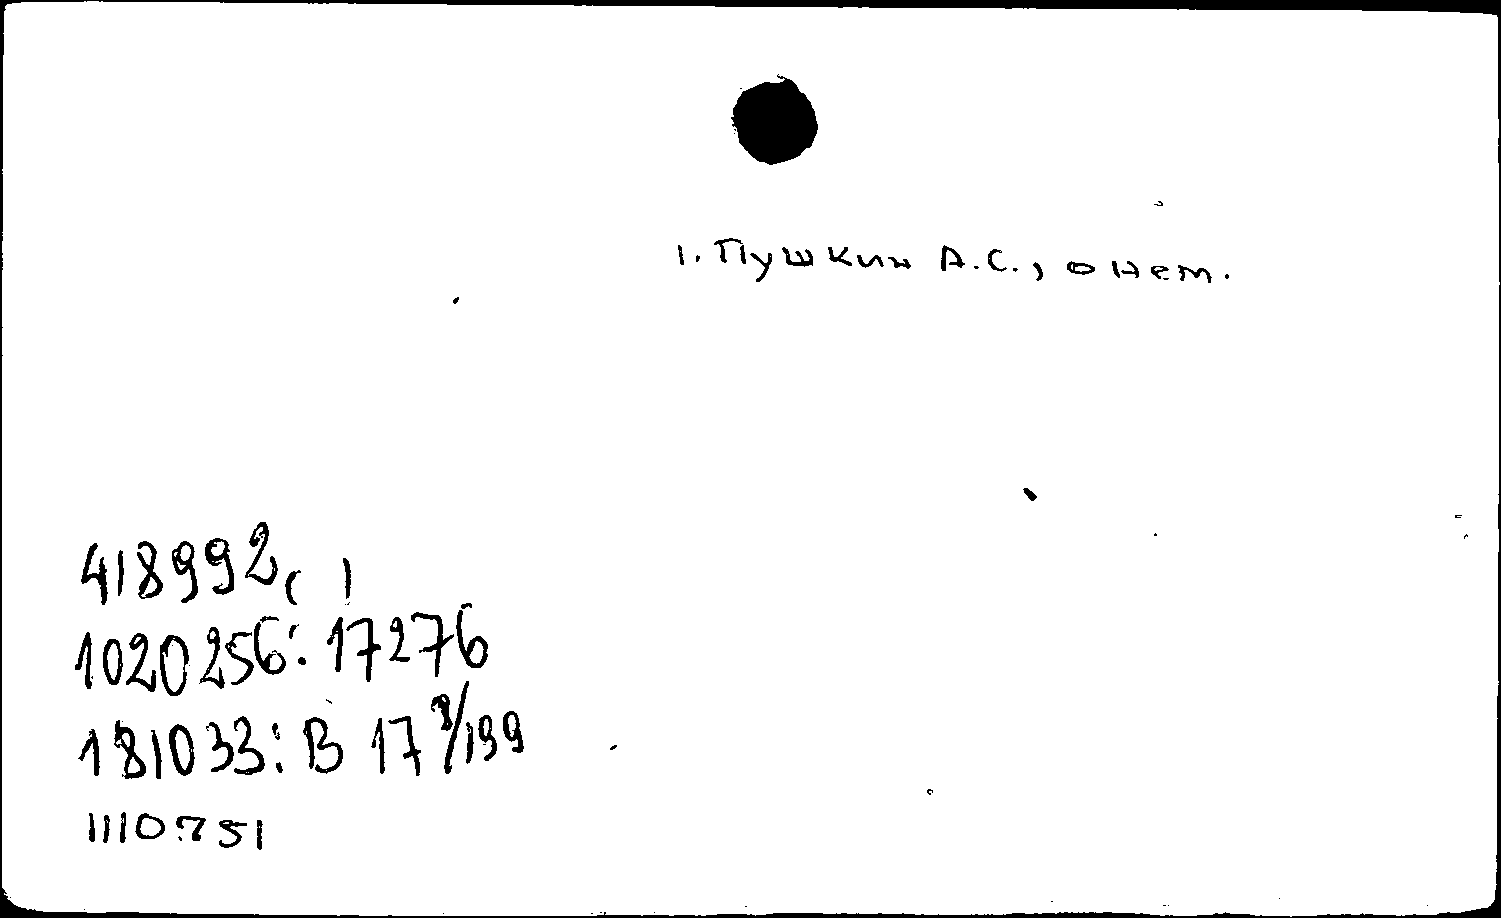 1. Пушкин А.С., о нем.
418992, ( )
1020256: 17276
181033: В 17 8/199
1110751